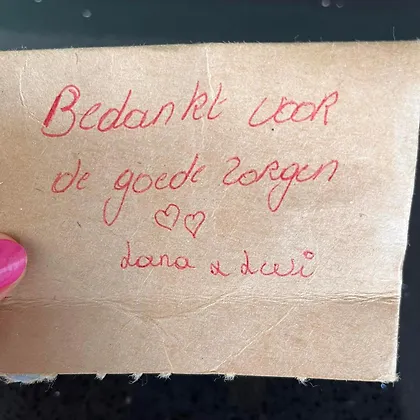 Bedankt voor
de goede zorgen
♡♡
Lana x Lewi